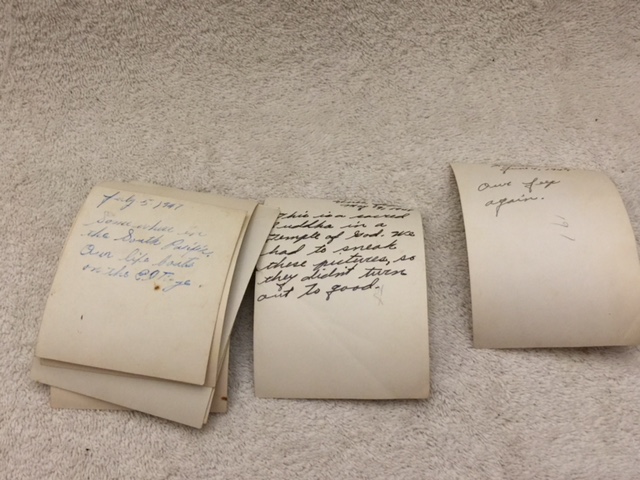 July 5 1941
Some where in
the South Pacific,
Our life boats
on the
This is a sacred
Buddha in a
temple of God. We
had to sneak
these pictures, so
they didnt turn
out to good.
Our
again.